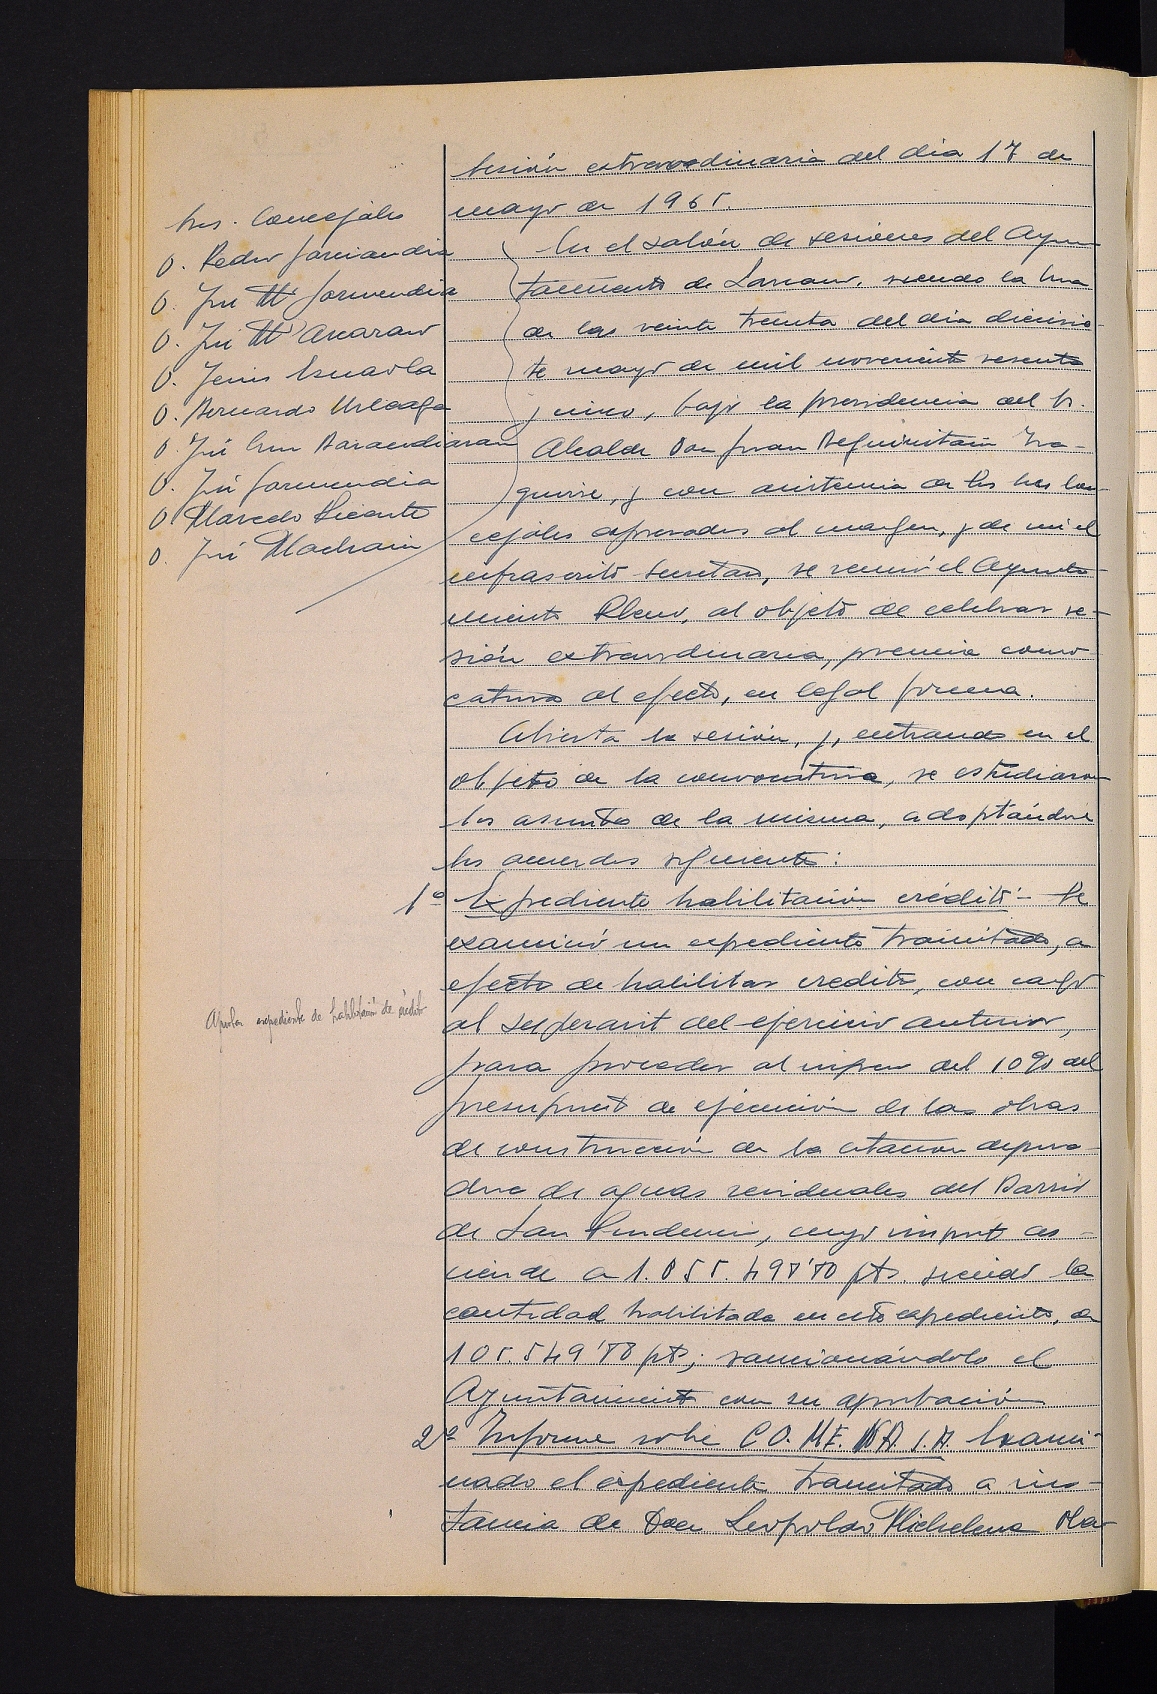 Sesión extraordinaria del dia 17 de
mayo de 1965.
Sres. Concejales
D. Pedro Garciandia
D. José Mª Garmendia
D. José Mª
D. Jesus
D. Bernardo Urteaga
D. José Luis Barandiaran
D. José Garmendia
D. Marcelo Vicente
D. José
En el salón de sesiones del Ayun
tamiento de Lazcano, siendo la hora
de las veinte treinta del dia diecisie
te mayo de mil novecientos sesenta
y cinco, bajo la presidencia del Sr.
Alcalde Don Juan Beguiristain Iza-
guirre, y con asistencia de los Sres Con-
cejales expresados al margen, y de mi el
infrascrito Secretario, se reunió el Ayunta
miento Pleno, al objeto de celebrar se-
sión extraordinaria, previa convo
catoria al efecto, en legal forma.
Abierta la sesión, y, entrando en el
objeto de la convocatoria, se estudiaron
los asuntos de la misma, adoptándose
los acuerdos siguientes:
1º Expediente habilitación crédito - Se
examinó un expediente tramitado, a
efecto de habilitar credito, con cargo
al superavit del ejercicio anterior,
Aprobar expediente de habilitación de crédito
para proceder al ingreso del 10% del
presupuesto de ejecución de las obras
de construcción de la estacion depura-
dora de aguas residuales del Barrio
de San Prudencio, cuyo importe as-
ciende a 1.055.498'80 pts. siendo la
cantidad habilitada en este expediente, de
105.549'88 pts; sancionándolo el
Ayuntamiento con su aprobación
2º Informe sobre C.O.ME.NA.S.A. Exami-
nado el expediente tramitado a ins-
tancia de Don Leopoldo Michelena